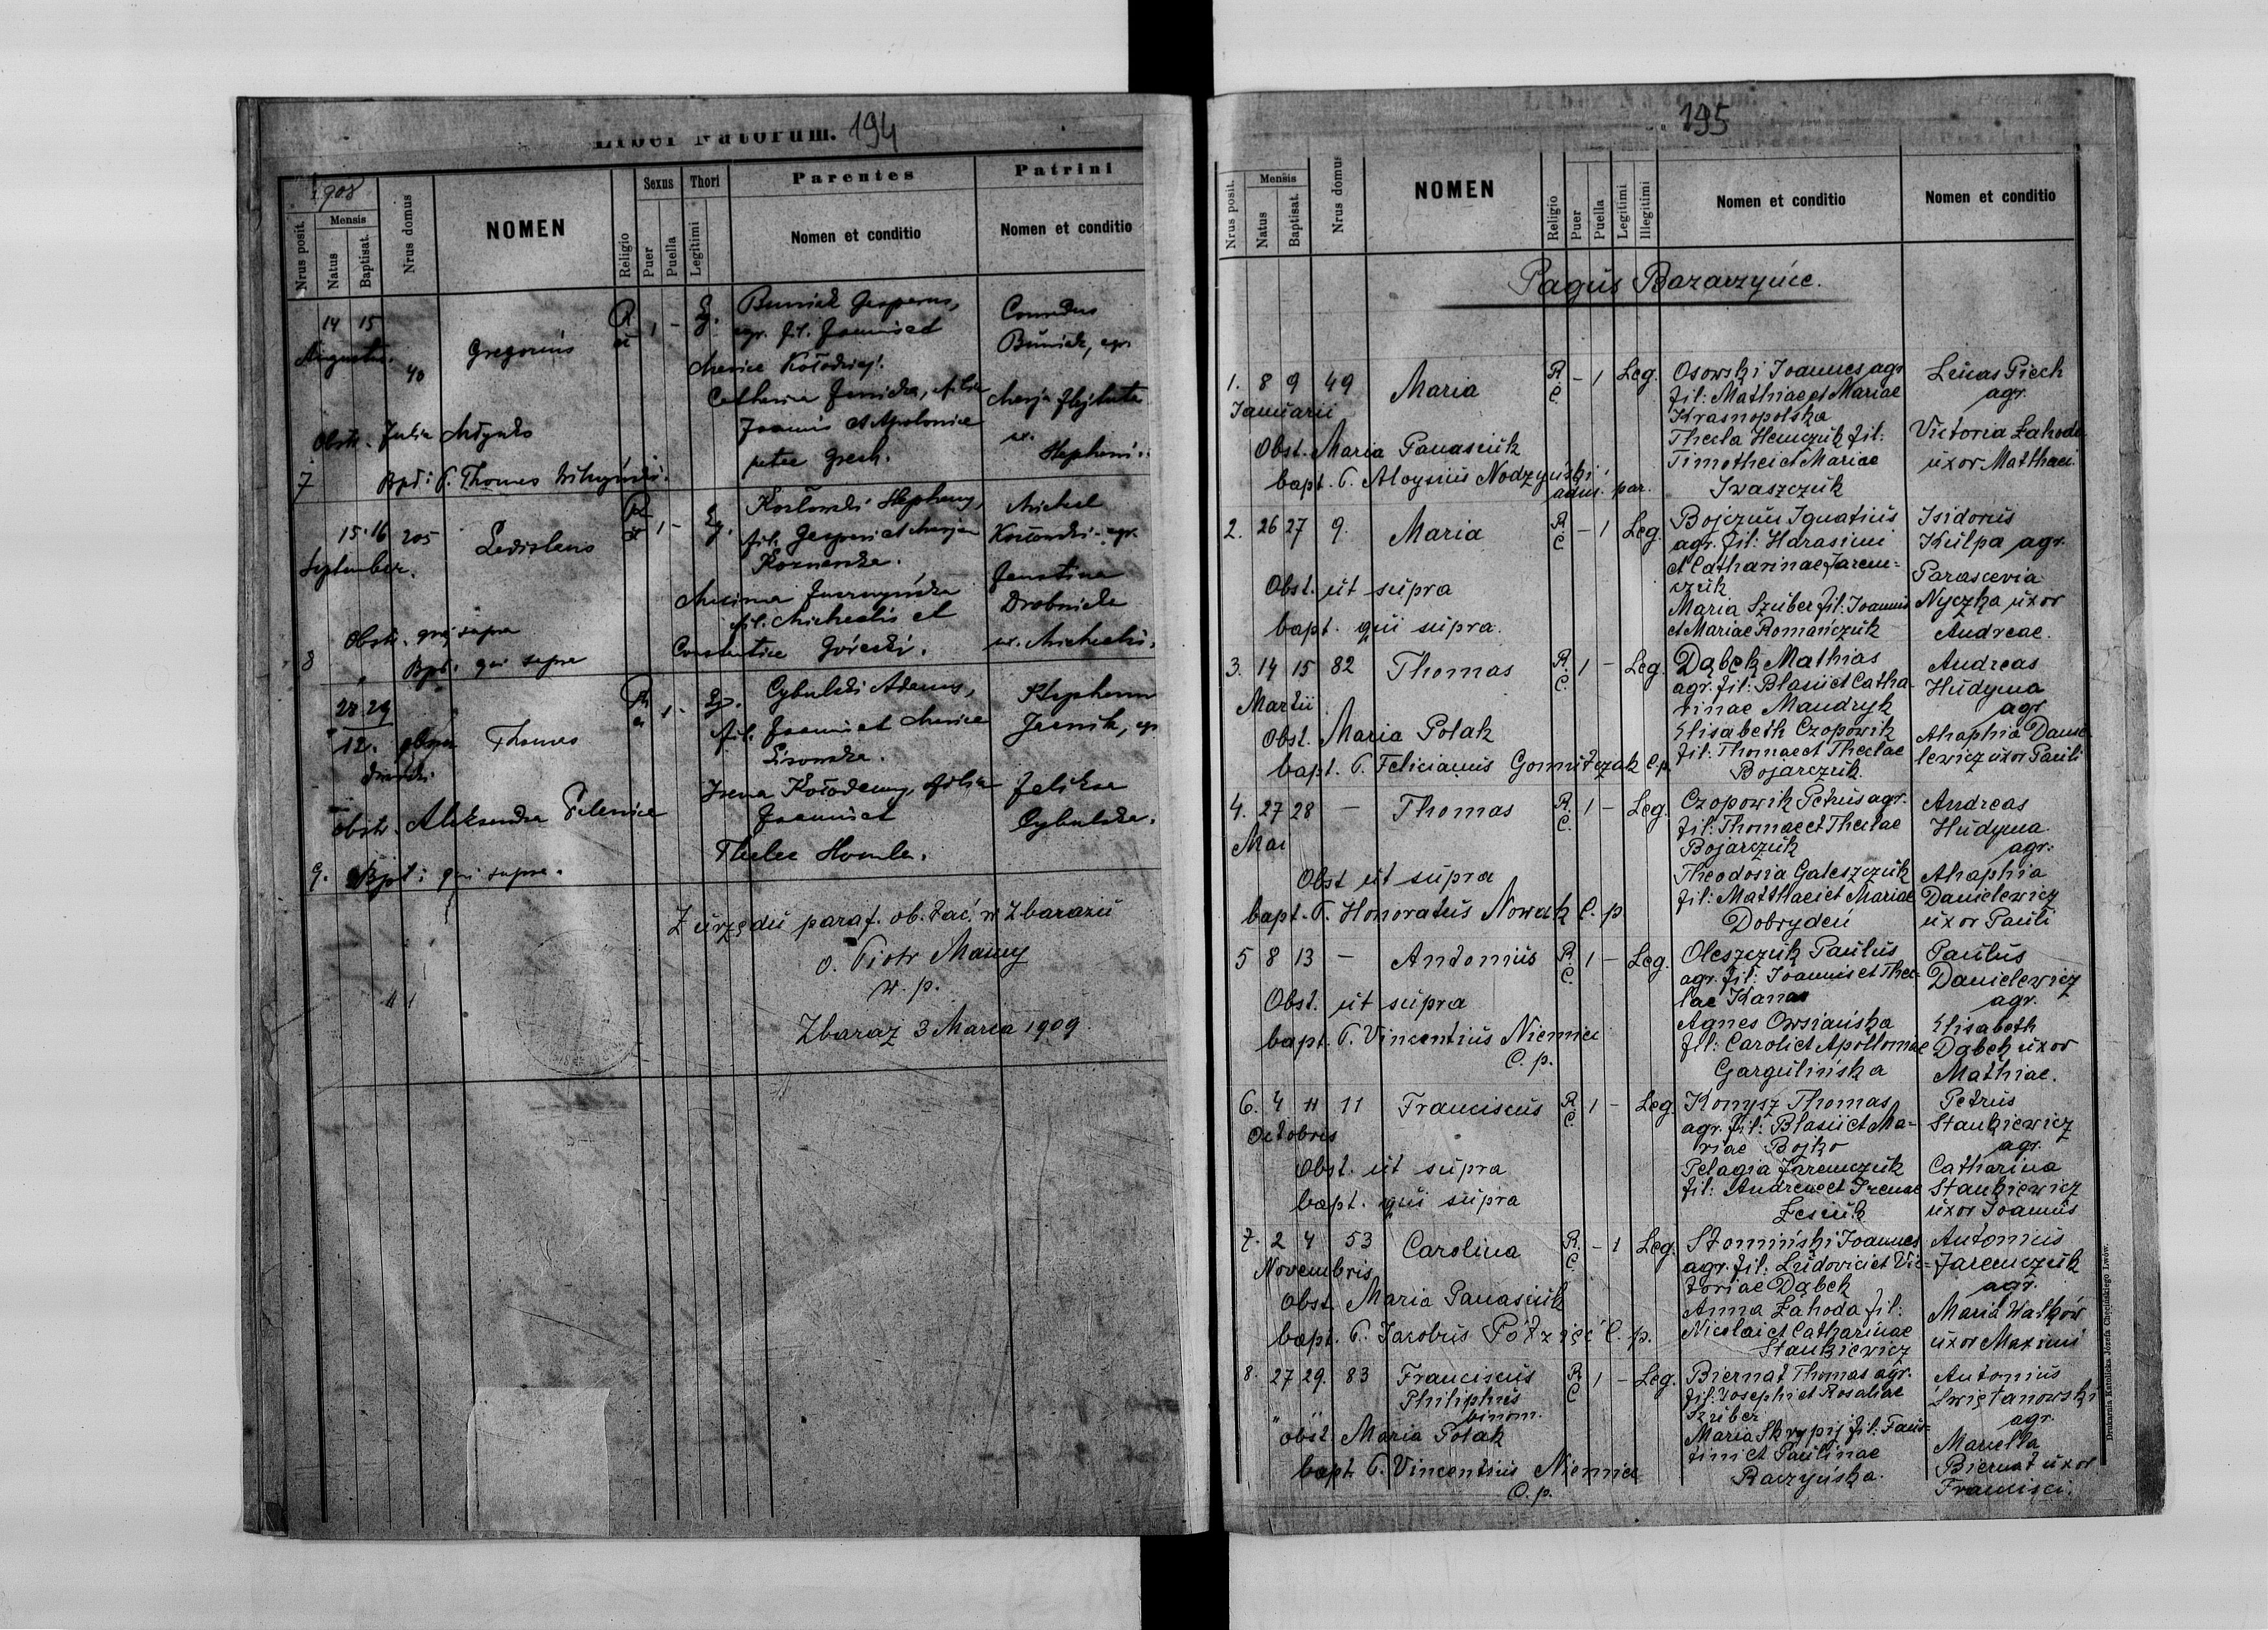 Liber Natorum. 194
1908
Nrus posit.
Mensis
Natus
Baptisat.
Nrus domus
NOMEN
Religio
Sexus
Puer
Puella
Thori
Legitimi
Parentes
Nomen et conditio
Patrini
Nomen et conditio
14 15
Augusti.
40
Gregorius
1 -
Lg.
agr. fil. Joannis et
Mariae Kołodziej.
Catharina filia
Joannis et Apoloniae
Conradus
agr.
ux.
Obstr. Julia
7 Bpt: P. Thomas
15. 16 205
September.
Ladislaus
1 -
Lg.
Kozłowski Stephanus,
fil. Gaspari et
fil. Michaelis et
Constantiae
Michael
Kozłowski - agr.
ux. Michaelis.
Obstr. quae supra
8 Bpt. qui supra
28 29
12.
Thomas
1 -
Lg.
Cybulski Adamus,
fil. Joannis et Mariae
Irena filia
Joannis et
Theclae
Stephanus
Feliksa
Cybulska.
Obstr. Aleksandra
9. Bpt: qui supra.
Z urzędu paraf. ob. łać. w Zbarażu
o. Piotr Mamy
w. p.
Zbaraż 3 Marca 1909
195
Nrus posit.
Mensis
Natus
Baptisat.
Nrus domus
NOMEN
Religio
Puer
Puella
Legitimi
Illegitimi
Nomen et conditio
Nomen et conditio
Pagus Bazarzyńce.
1. 8 9 49 Maria R. C. - 1 Leg.
Januarii
Osowski Joannes agr
fil: Mathiae et Mariae
Krasnopolska
Thecla Hemczuk fil:
Timothei et Mariae
Iwaszczuk
Lucas Piech
agr.
Victoria Zahoda
uxor Matthaei
Obst. Maria Panasciuk
bapt. P. Aloysius Nodzyński
adm. par.
2. 26 27 9. Maria R C - 1 Leg.
Bojczun Ignatius
agr. fil: Harasimi
et Catharinae Jarem-
czuk
Maria Szuber fil: Joannis
et Mariae Romańczuk
Isidorus
Kulpa agr.
Parascevia
Nyczka uxor
Andreae.
Obst. ut supra
bapt. qui supra.
3. 14 15 82 Thomas R. C. 1 - Leg.
Martii
Dąbek Mathias
agr. fil: Blasii et Catha-
rinae Mandryk
Elisabeth Czopowik
fil: Thomae et Theclae
Bojarczuk.
Andreas
Hudyma
agr
Ahaphia Danie
lewicz uxor Pauli
Obst. Maria Polak
bapt. P. Felicianus Gomułczak C. p.
4. 27 28 - Thomas R. C. 1 - Leg.
Mai
Czopowik Petrus agr.
fil: Thomae et Theclae
Bojarczuk
Theodosia Galeszczuk
fil: Matthaei et Mariae
Dobrydeń
Andreas
Hudyma
agr.
Ahaphia
Danielewicz
uxor Pauli
Obst ut supra
bapt. P. Honoratus Nowak C. p
5 8 13 - Antonius R. C. 1 - Leg.
Oleszczuk Paulus
agr. fil: Joannis et Thec-
lae Kanas
Agnes Owsiańska
fil: Caroli et Apolloniae
Gargulińska
Paulus
Danielewicz
agr.
Elisabeth
Dąbek uxor
Mathiae.
Obst. ut supra
bapt. P. Vincentius Niemiec
C. p.
6. 4 11 11 Franciscus R. C. 1 - Leg.
Octobris
Komysz Thomas
agr. fil: Blasii et Ma-
riae Bojko
Pelagia Jaremczuk
fil: Andreae et Irenae
Lesiuk
Petrus
Stankiewicz
agr.
Catharina
Stankiewicz
uxor Joannis
Obst. ut supra
bapt. qui supra
7. 2 4 53 Carolina R. C. - 1 Leg.
Novembris
Słomiński Joannes
agr. fil: Ludovici et Vic-
toriae Dąbek
Anna Zahoda fil:
Nicolai et Catharinae
Stankiewicz
Antonius
Jaremczuk
agr.
Maria Wałków
uxor Maximi
Obst. Maria Panasciuk
bapt. P. Jacobus Półzięć C. p.
8. 27 29. 83 Franciscus R C 1 - Leg.
Philiphus
binom.
Biernat Thomas agr.
fil: Josephi et Rosaliae
Szuber
Maria Skrypij fil: Faus-
tini et Paulinae
Raczyńska.
Antonius
Świętanowski
agr.
Mariella
Biernat uxor
Francisci.
obst. Maria Polak
bapt P. Vincentius Niemiec
C. p.
Drukarnia Katolicka Józefa Chęcińskiego Lwów.